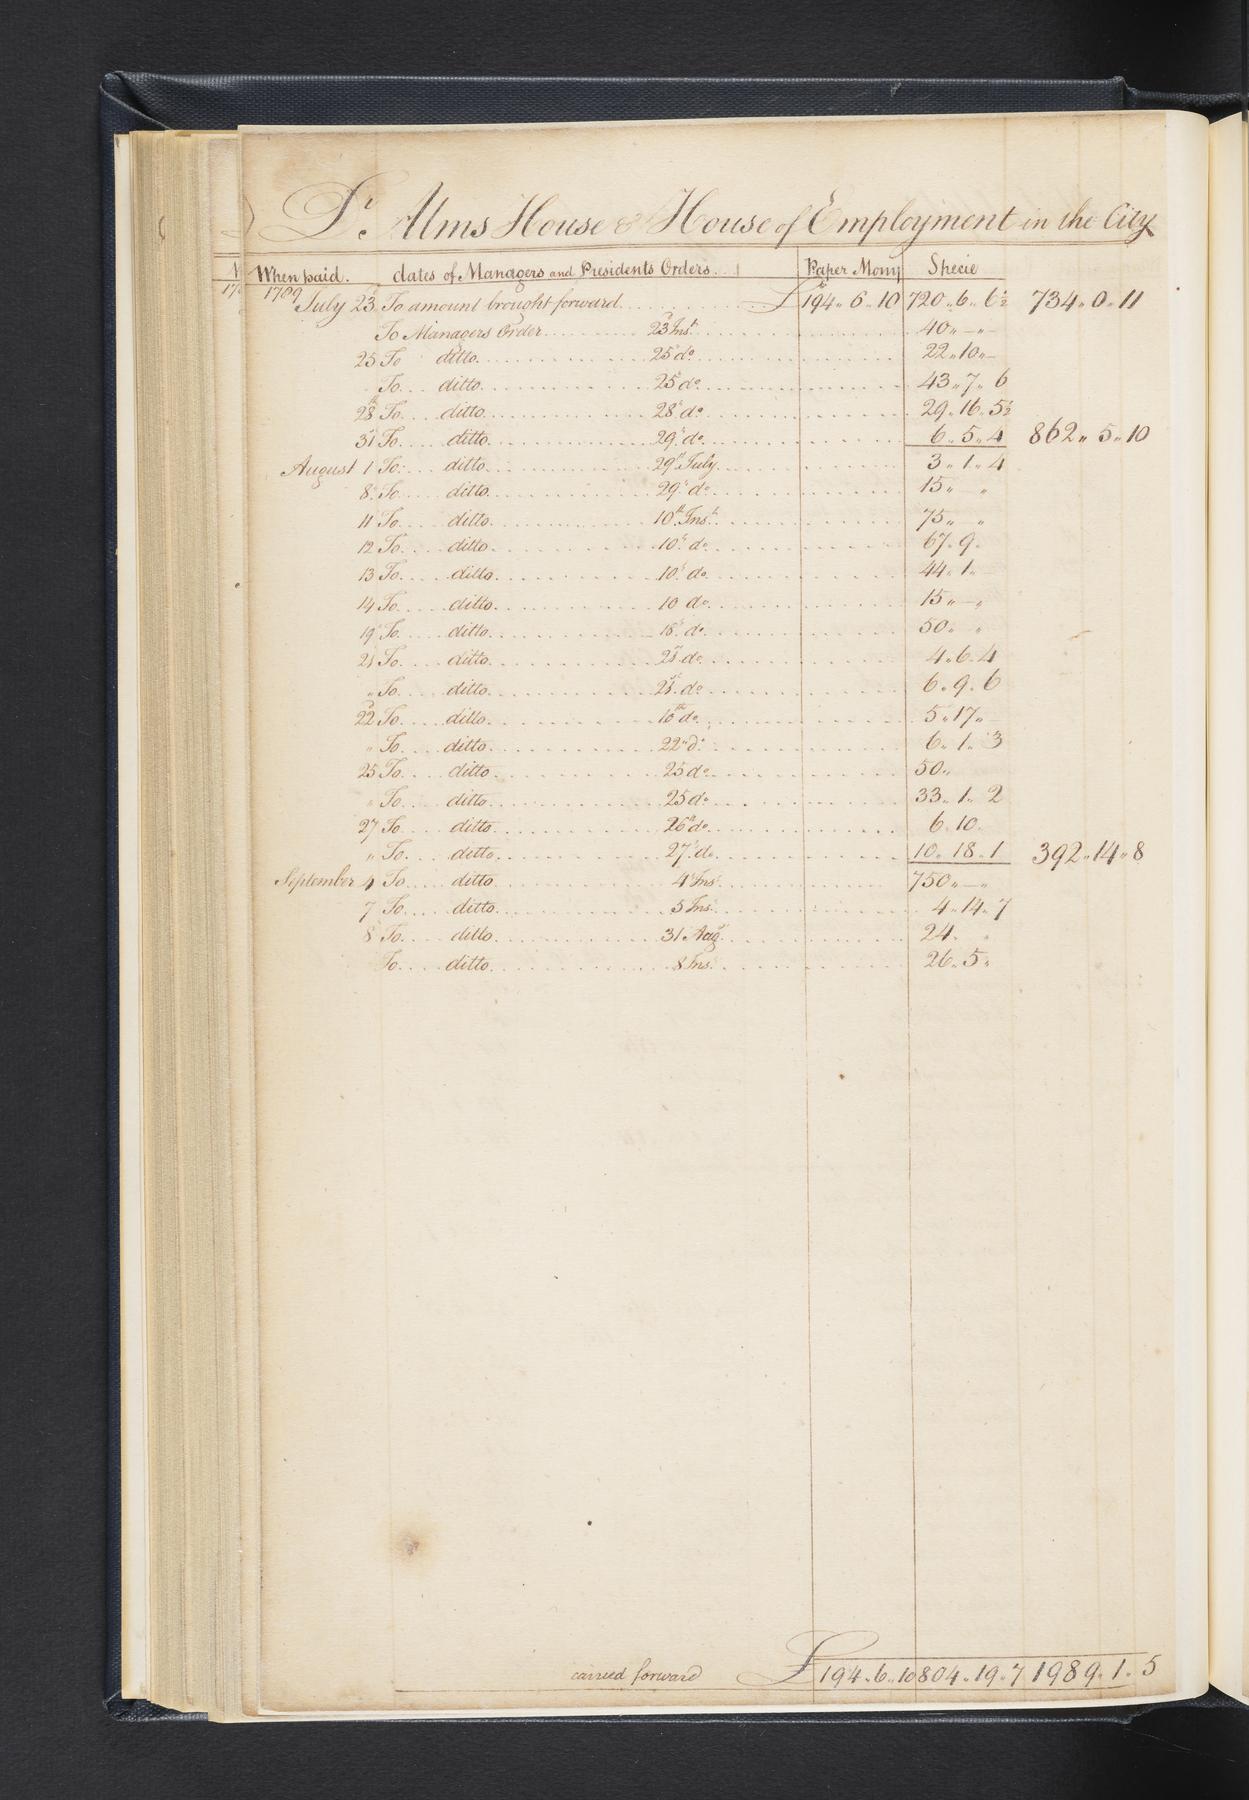 Dr. Alms House & House of Employment in the City
When paid. dates of Managers and Presidents Orders. Paper Mony Specie
1789 July 23 To amount brought forward £194„6„10 720„6„6½ 734„0„11
To Managers Order 23d Inst. 40„—„—
25 To ditto 25 do. 22„10„—
To ditto 25 do. 43„7„6
28th To ditto 28 do. 29„16„5½
31 To ditto 29 do. 6„5„4 862„5„10
August 1 To ditto 29th July 3„1„4
8 To ditto 29 do. 15„—„
11 To ditto 10th Inst. 75„ „
12 To ditto 10 do. 67„9„
13 To ditto 10 do. 44„1„—
14 To ditto 10 do. 15„—„
19 To ditto 18 do. 50„ „
21 To ditto 21 do. 4„6„4
„ To ditto 21 do. 6„9„6
22d To ditto 10th do. 5„17„—
„ To ditto 22d do. 6„1„3
25 To ditto 25 do. 50„
„ To ditto 25 do. 33„1„2
27 To ditto 26th do. 6„10„
„ To ditto 27 do. 10„18„1 392„14„8
September 4 To ditto 4 Inst. 750„—„
7 To ditto 5 Inst. 4„14„7
8 To ditto 31 Aug. 24„ „
To ditto 8 Inst. 26„5„
carried forward £194„6„10 804„19„7 1989„1„5